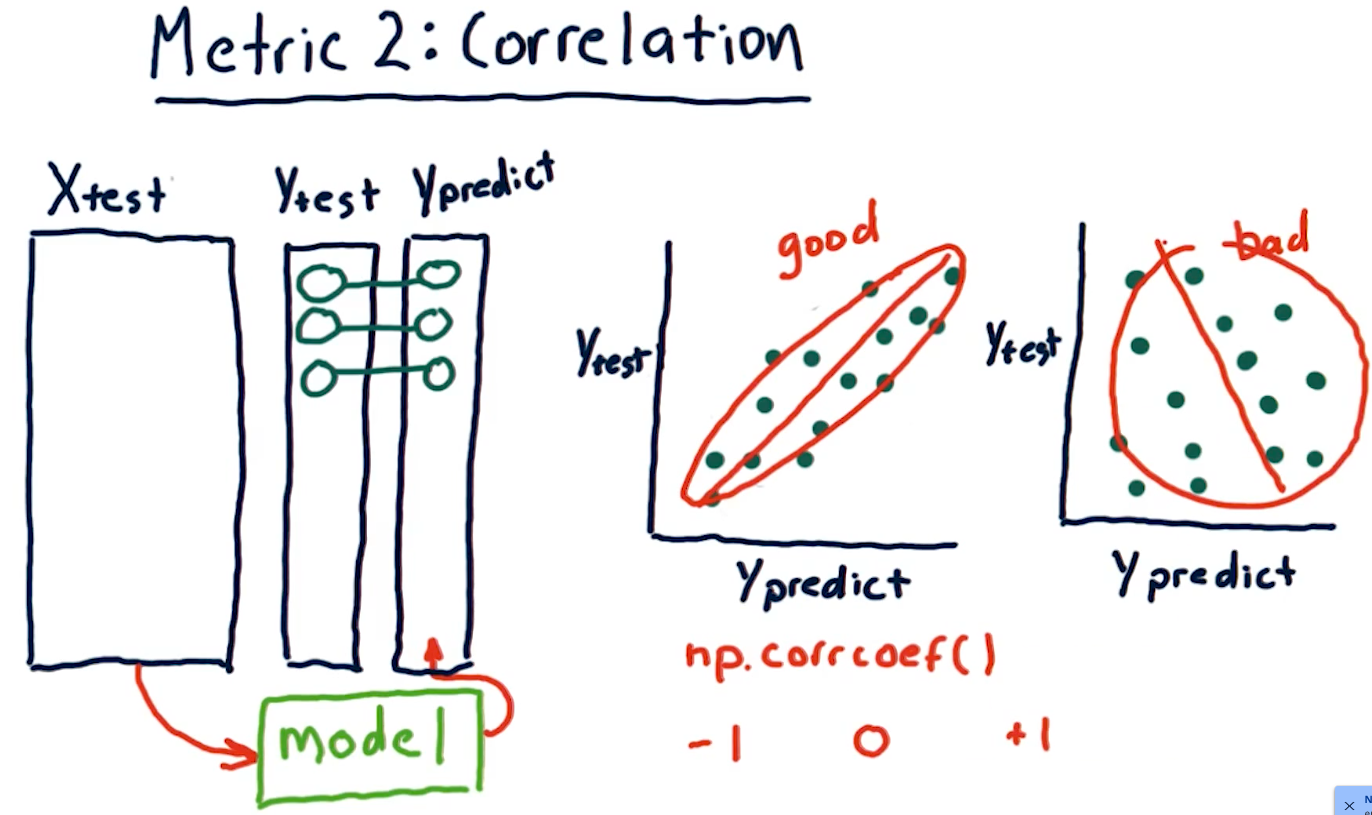 Metric 2: Correlation
Xtest
Ytest
Ypredict
good
Ytest
Ypredict
bad
Ytest
Ypredict
np.corrcoef()
-1 0 +1
model